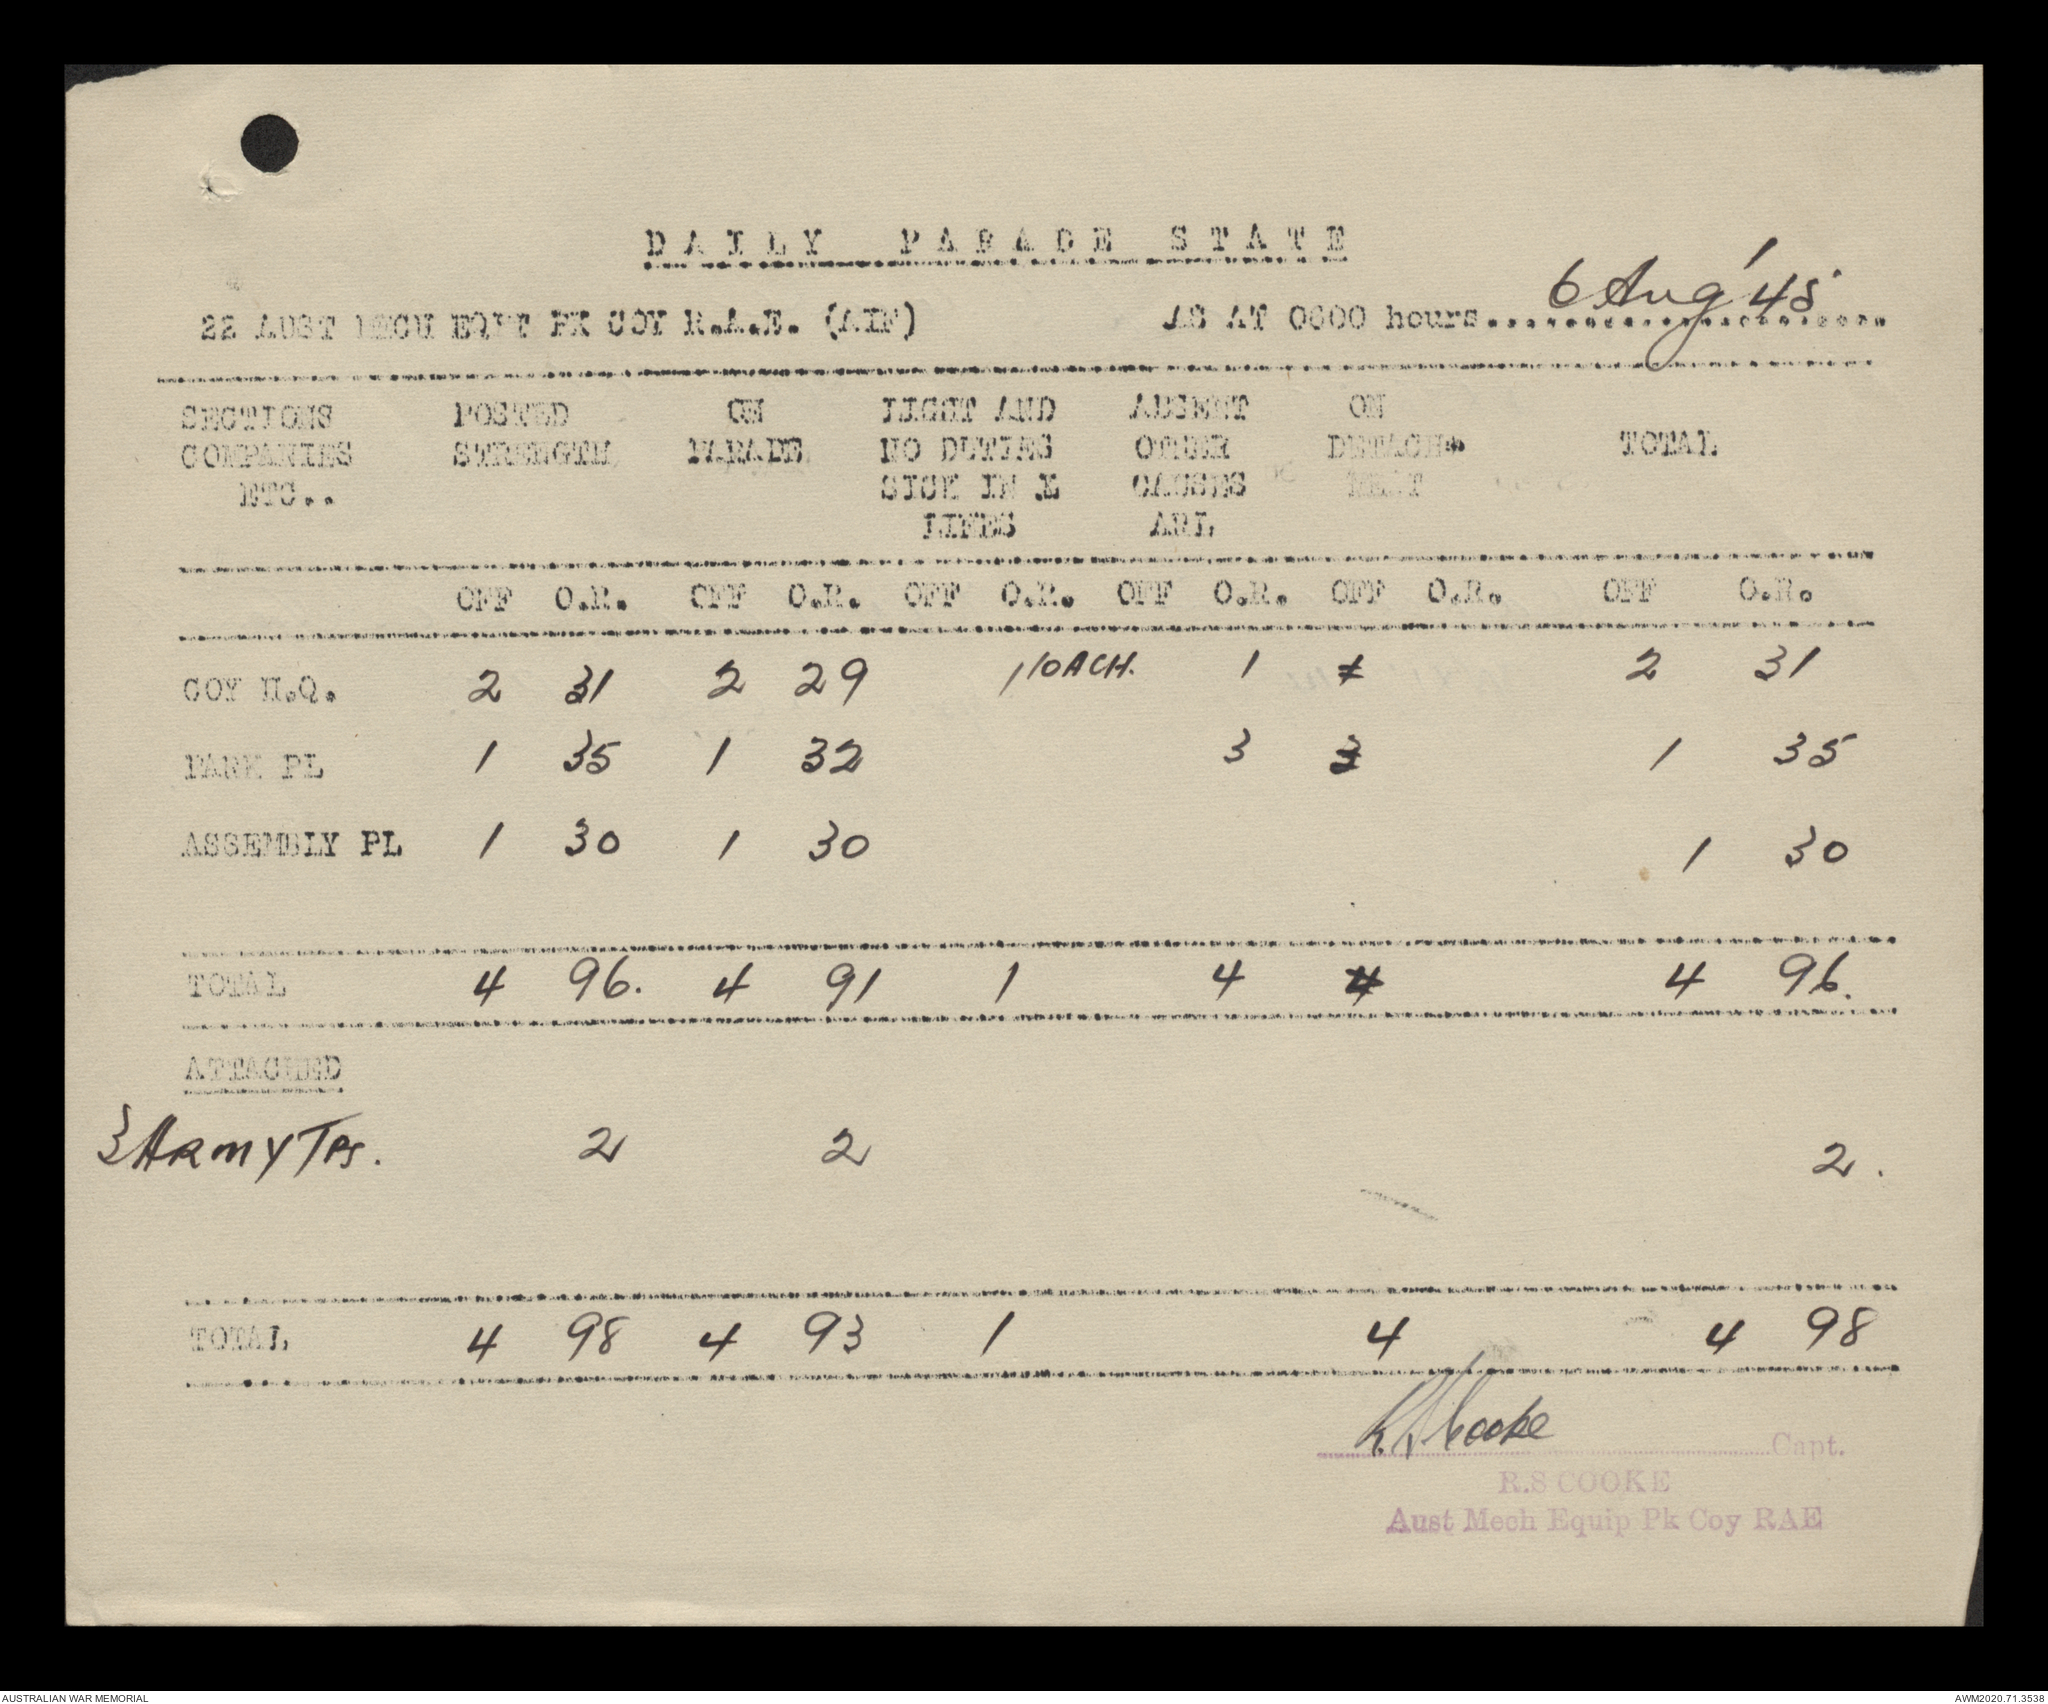 DAILY PARADE STATE
22 AUST MECH EQPT PK COY R.A.E. (AIF) AS AT 0600 hours 6 Aug '45
SECTIONS POSTED ON LIGHT AND ABSENT ON
COMPANIES STRENGTH PARADE NO DUTIES OTHER DETACH- TOTAL
ETC.. SICK IN LINES CAUSES MENT
LINES ARL
OFF O.R. OFF O.R. OFF O.R. OFF O.R. OFF O.R. OFF O.R.
COY H.Q. 2 31 2 29 1 10 ACH. 1 1 2 31
PARK PL 1 35 1 32 3 3 1 35
ASSEMBLY PL 1 30 1 30 1 30
TOTAL 4 96. 4 91 1 4 4 4 96.
ATTACHED
3 ARMY TPS. 2 2 2.
TOTAL 4 98 4 93 1 4 4 98
R S Cooke Capt.
R.S COOKE
Aust Mech Equip Pk Coy RAE
AUSTRALIAN WAR MEMORIAL AWM2020.71.3538